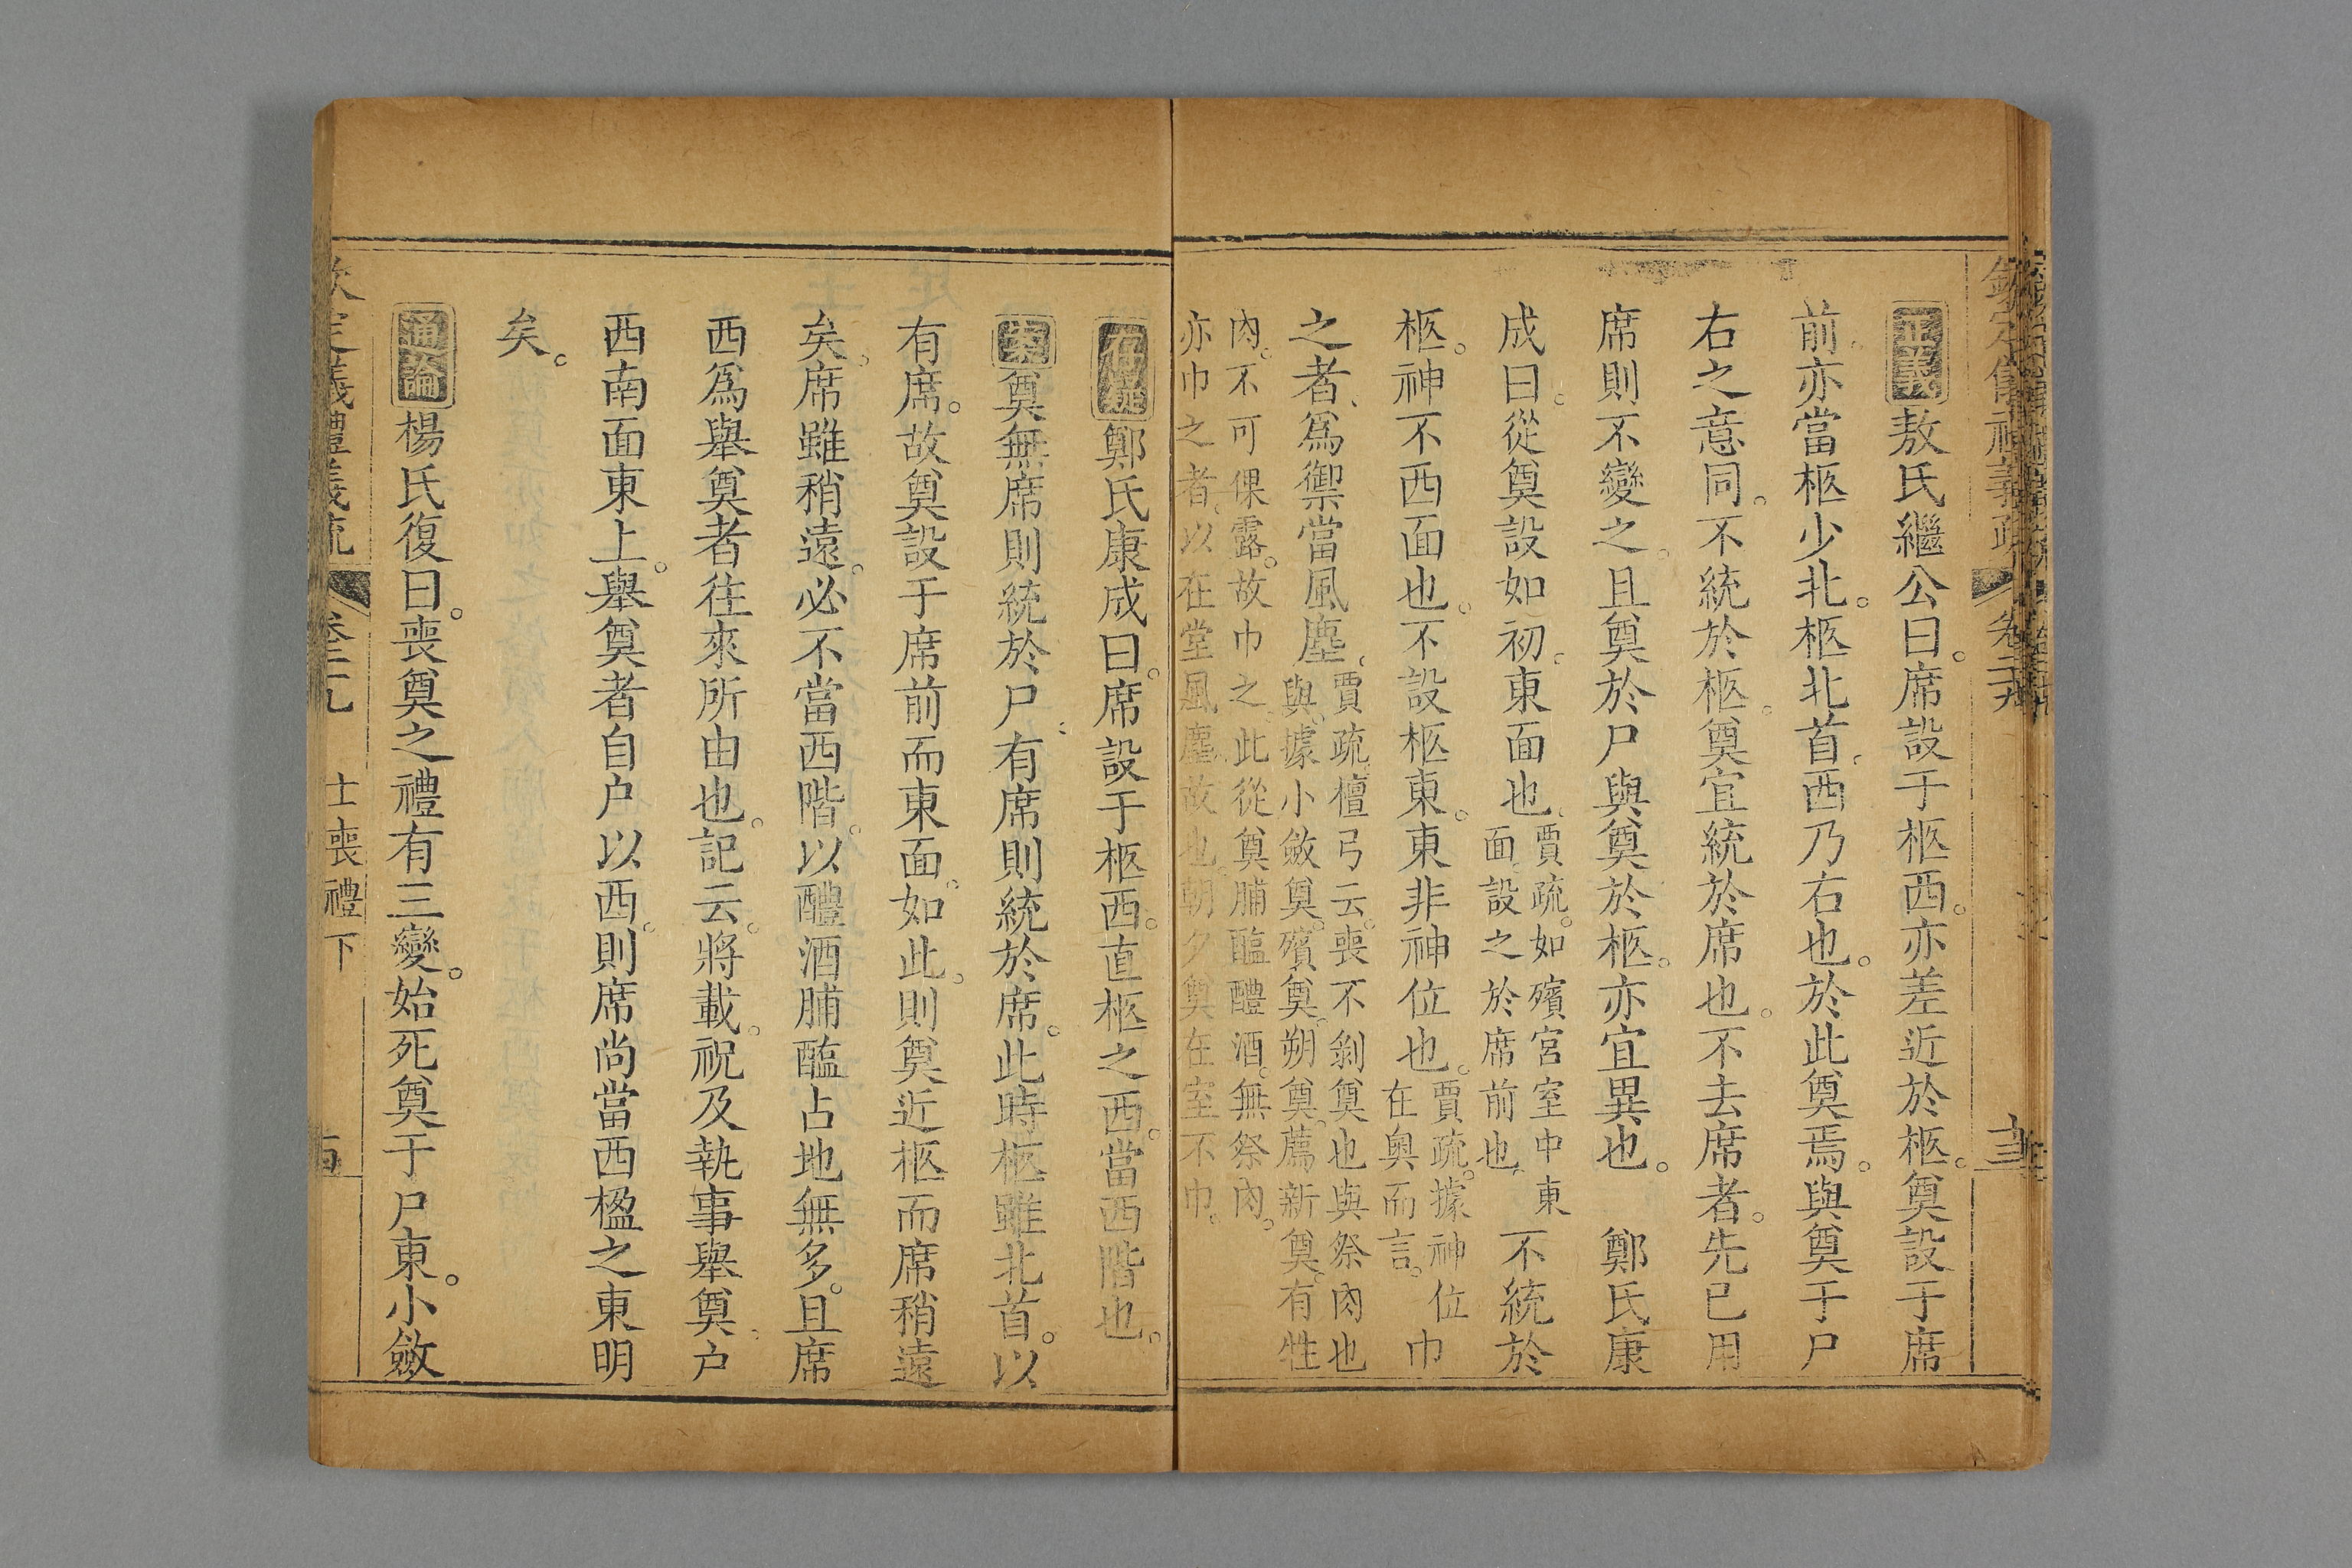 正義敖氏繼公曰。席設于柩西。亦差近於柩。奠設于席
前。亦當柩少北。柩北首。西乃右也。於此奠焉。與奠于尸
右之意同。不統於柩。奠宜統於席也。不去席者。先已用
席則不變之。且奠於尸與奠於柩。亦宜異也。 鄭氏康
成曰。從奠設如初。東面也。賈疏。如殯宮室中東面。設之於席前也。不統於
柩。神不西面也。不設柩東。東非神位也。賈疏。據神位在奧而言。巾
之者。爲禦當風塵。賈疏。檀弓云。喪不剝奠也與祭肉也與。據小斂奠。殯奠。朔奠。薦新奠。有牲
肉。不可倮露。故巾之。此從奠脯醢醴酒。無祭肉。
亦巾之者。以在堂風塵故也。朝夕奠在室不巾。
存疑鄭氏康成曰。席設于柩西。直柩之西。當西階也。
案奠無席則統於尸、有席則統於席。此時柩雖北首。以
有席。故奠設于席前而東面。如此。則奠近柩而席稍遠
矣。席雖稍遠。必不當西階。以醴酒脯醢占地無多。且席
西爲舉奠者往來所由也。記云。將載。祝及執事舉奠。户
西南面東上。舉奠者自户以西。則席尚當西楹之東明
矣。
通論楊氏復曰。喪奠之禮有三變。始死奠于尸東。小斂
欽定儀禮義疏
卷二九 士喪禮下